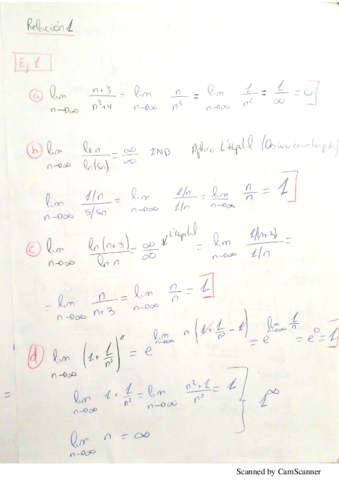 Relación 1
Ej 1
a) lim n→∞ (n+3)/(n³+4) = lim n→∞ n/n³ = lim n→∞ 1/n² = 1/∞ = 0
b) lim n→∞ ln n/ln(5n) = ∞/∞ IND Aplico L'Hôpital
lim n→∞ (1/n)/(5/5n) = lim n→∞ (1/n)/(1/n) = lim n→∞ n/n = 1
c) lim n→∞ ln(n+3)/ln n = ∞/∞ L'Hôpital = lim n→∞ (1/(n+3))/(1/n) =
= lim n→∞ n/(n+3) = lim n→∞ n/n = 1
d) lim n→∞ (1+1/n²)ⁿ = e^(lim n→∞ n(1+1/n²-1)) = e^(lim n→∞ 1/n) = e⁰ = 1
= lim n→∞ 1+1/n² = lim n→∞ (n²+1)/n² = 1
1^∞
lim n→∞ n = ∞
Scanned by CamScanner